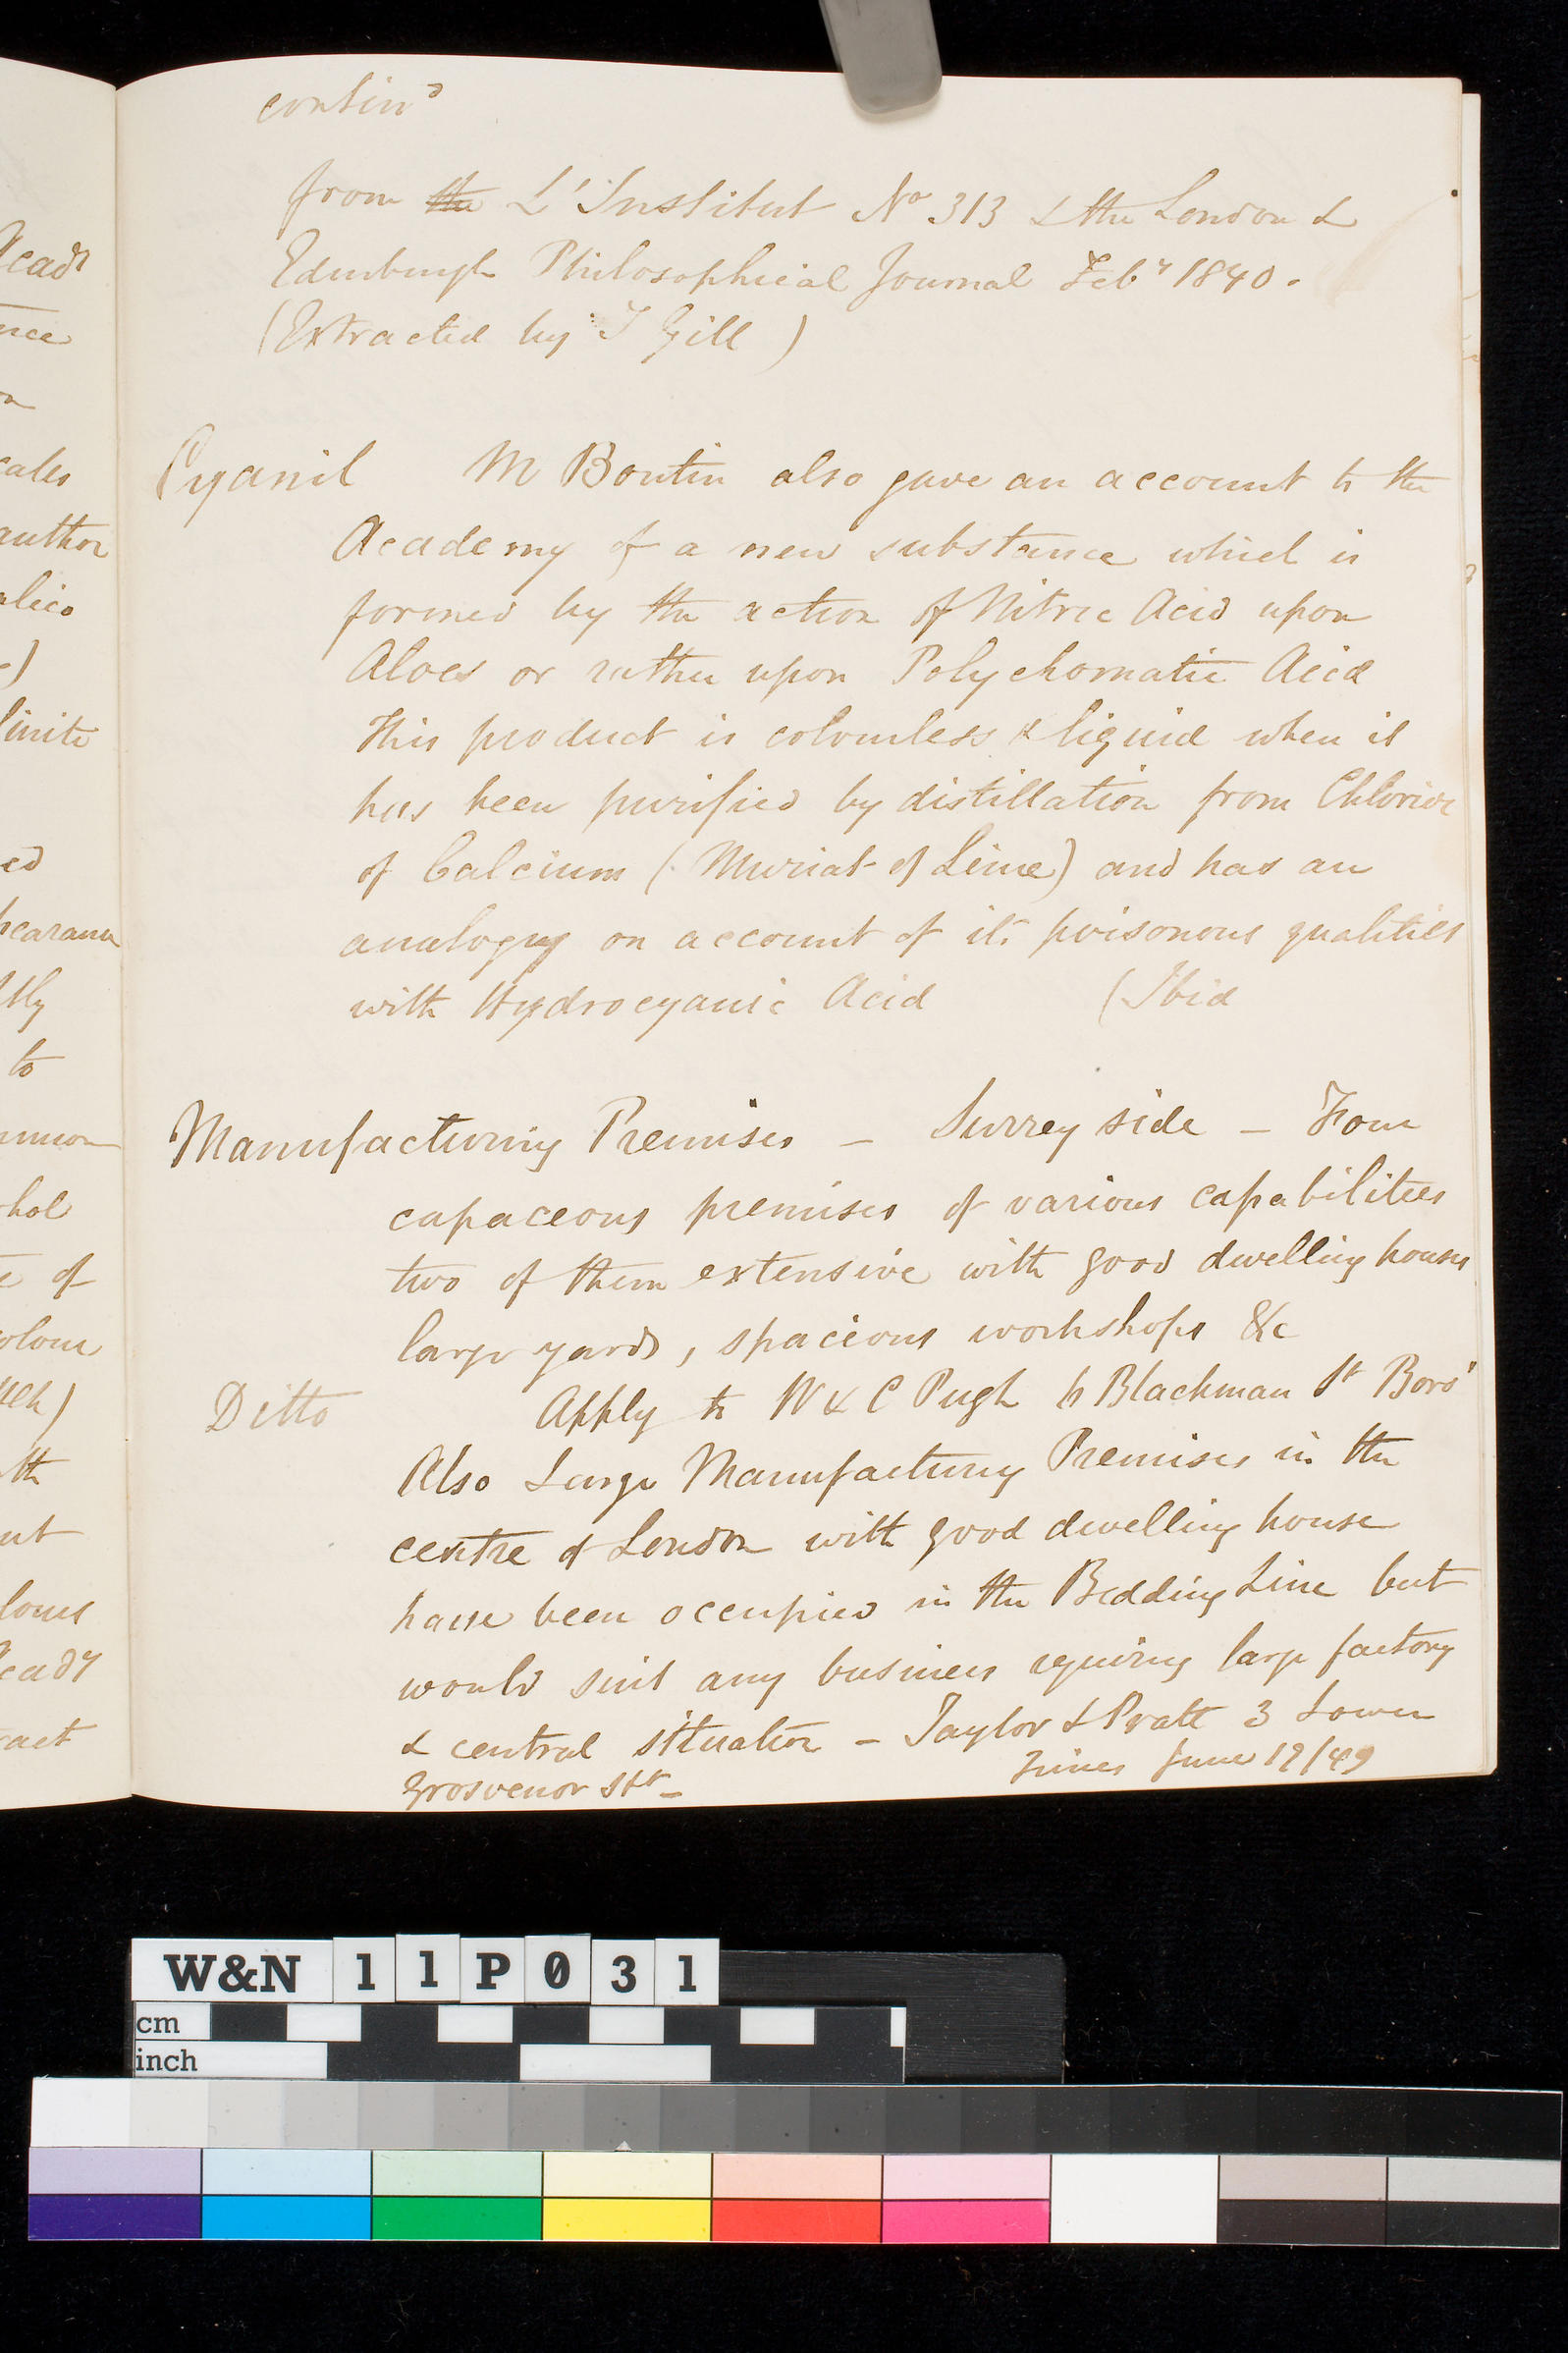 contin^d
from the L'Institut No 313 & the London &
Edinburgh Philosophical Journal Feby 1840.
(Extracted by T Gill)
Cyanil M Boutin also gave an account to the
Academy of a new substance which is
formed by the action of Nitric Acid upon
Aloes or rather upon Polychomatic Acid
This product is colourless & liquid when it
has been purified by distillation from Chloride
of Calcium (Muriat of Lime) and has an
analogy on account of its poisonous qualities
with Hydrocyanic Acid (Ibid
Manufacturing Premises - Surrey side - Four
capaceous premises of various capabilities
two of them extensive with good dwelling houses
large yards, spacious workshops &c
Ditto Apply to W & C Pugh Blackman St Boro'
Also Large Manufacturing Premises in the
centre of London with good dwelling house
have been occupied in the Bedding Line but
would suit any business requiring large factory
& central situation - Taylor & Pratt 3 Lower
Grosvenor Stt - Times June 19/49
Acady
author
to
of
act
W&N 11P031
cm
inch